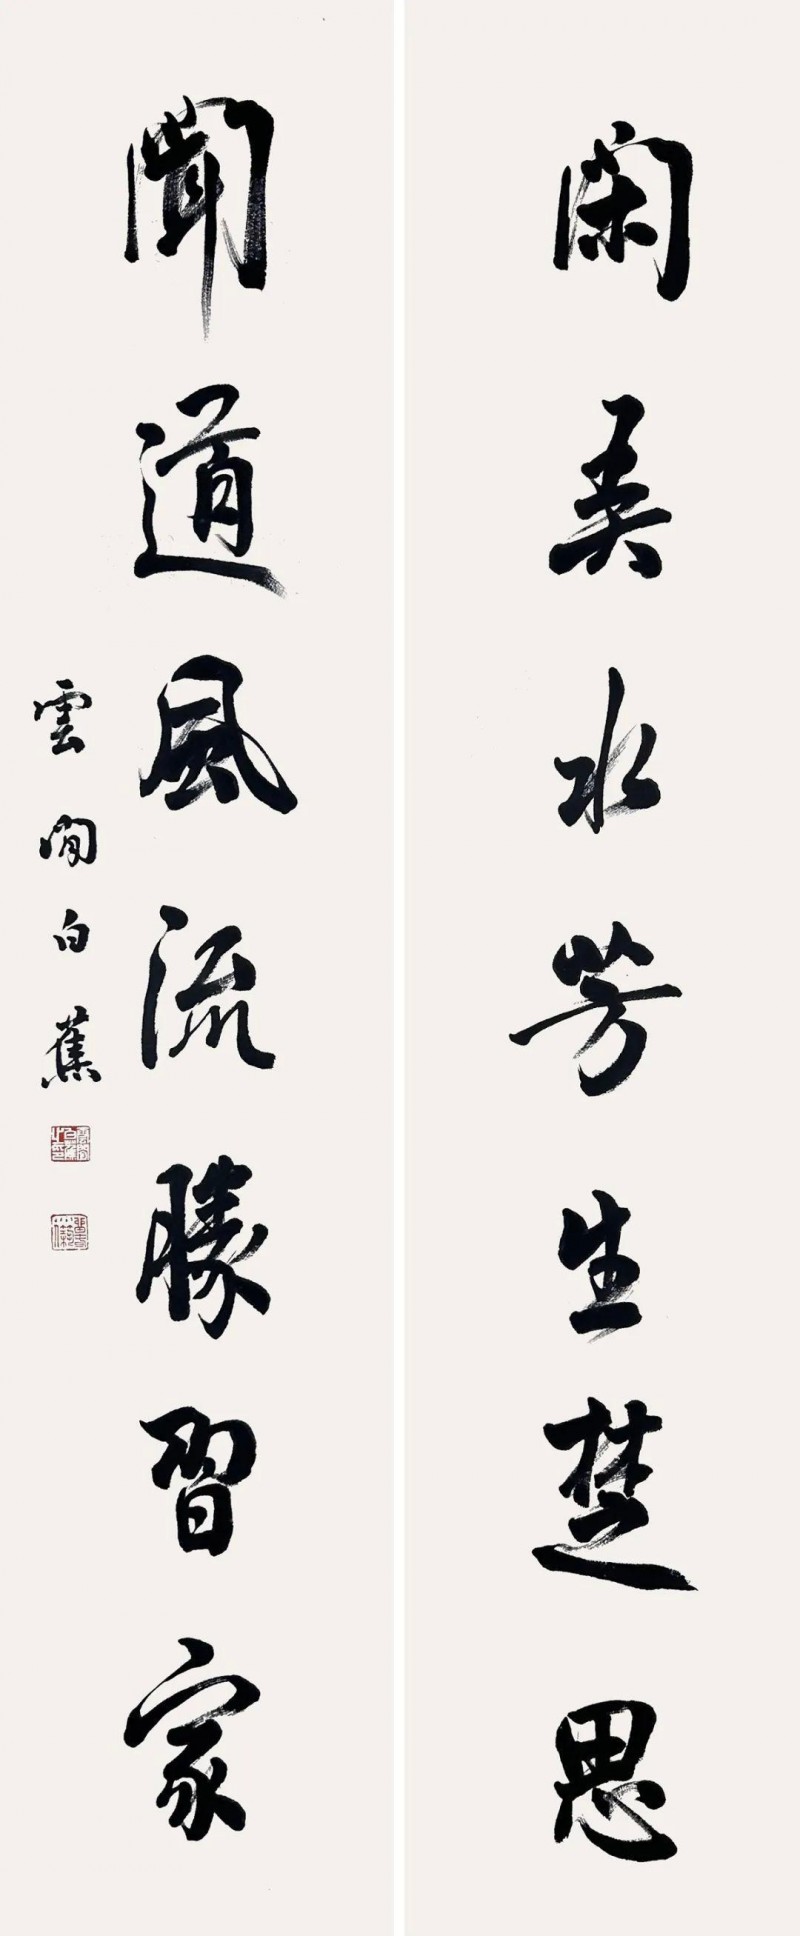 閑弄水芳生楚思
聞道風流勝習家
雲閒白蕉